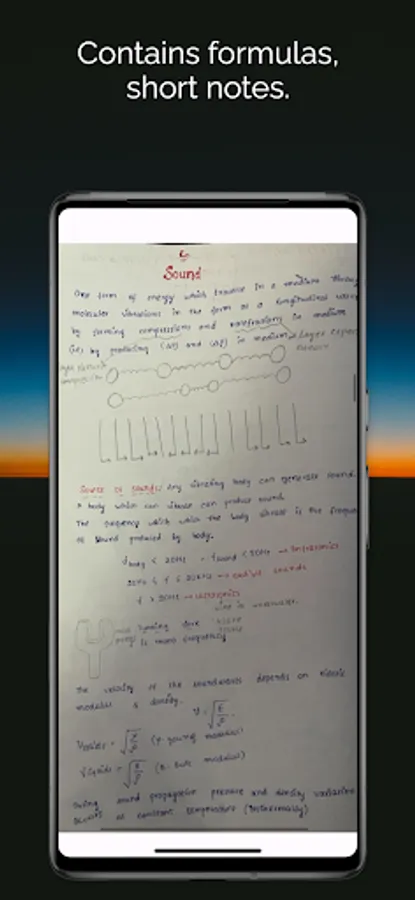 Contains formulas,
short notes.
Sound
One form of energy which travels in a medium through
molecular vibrations in the form of a longitudinal wave
by forming compressions and rarefactions in medium
by producing (ΔP) and (Δρ) in medium
Source of sound: Any vibrating body can generate sound.
A body which can vibrate can produce sound.
The frequency with which the body vibrates is the frequ
of sound produced by body.
< 20Hz → Infrasonics
→ audible sounds
→ ultrasonics
tuning fork
is more frequency
The velocity of the soundwaves depends on elastic
modulus & density.
V = √E/ρ
Vsolids = √Y/ρ (Y- young modulus)
Vliquids = √B/ρ (B- bulk modulus)
During sound propagation pressure and density variation
occurs at constant temperature (Isothermally)